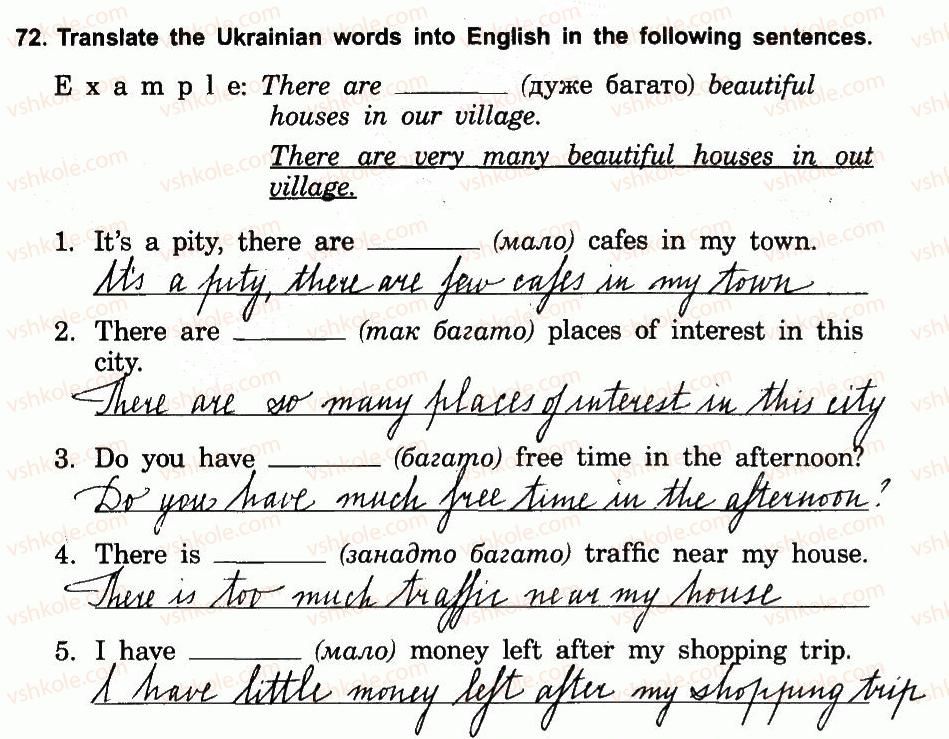 72. Translate the Ukrainian words into English in the following sentences.
E x a m p l e: There are ________ (дуже багато) beautiful
houses in our village.
There are very many beautiful houses in out
village.
1. It's a pity, there are ________ (мало) cafes in my town.
It's a pity, there are few cafes in my town
2. There are ________ (так багато) places of interest in this
city.
There are so many places of interest in this city
3. Do you have ________ (багато) free time in the afternoon?
Do you have much free time in the afternoon?
4. There is ________ (занадто багато) traffic near my house.
There is too much traffic near my house
5. I have ________ (мало) money left after my shopping trip.
I have little money left after my shopping trip